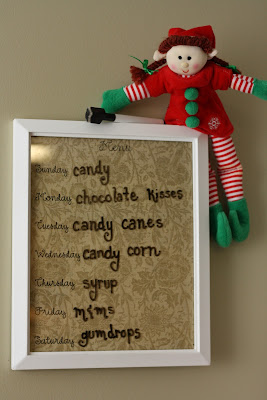 Menu
Sunday candy
Monday chocolate kisses
Tuesday candy canes
Wednesday candy corn
Thursday syrup
Friday m&ms
Saturday gumdrops